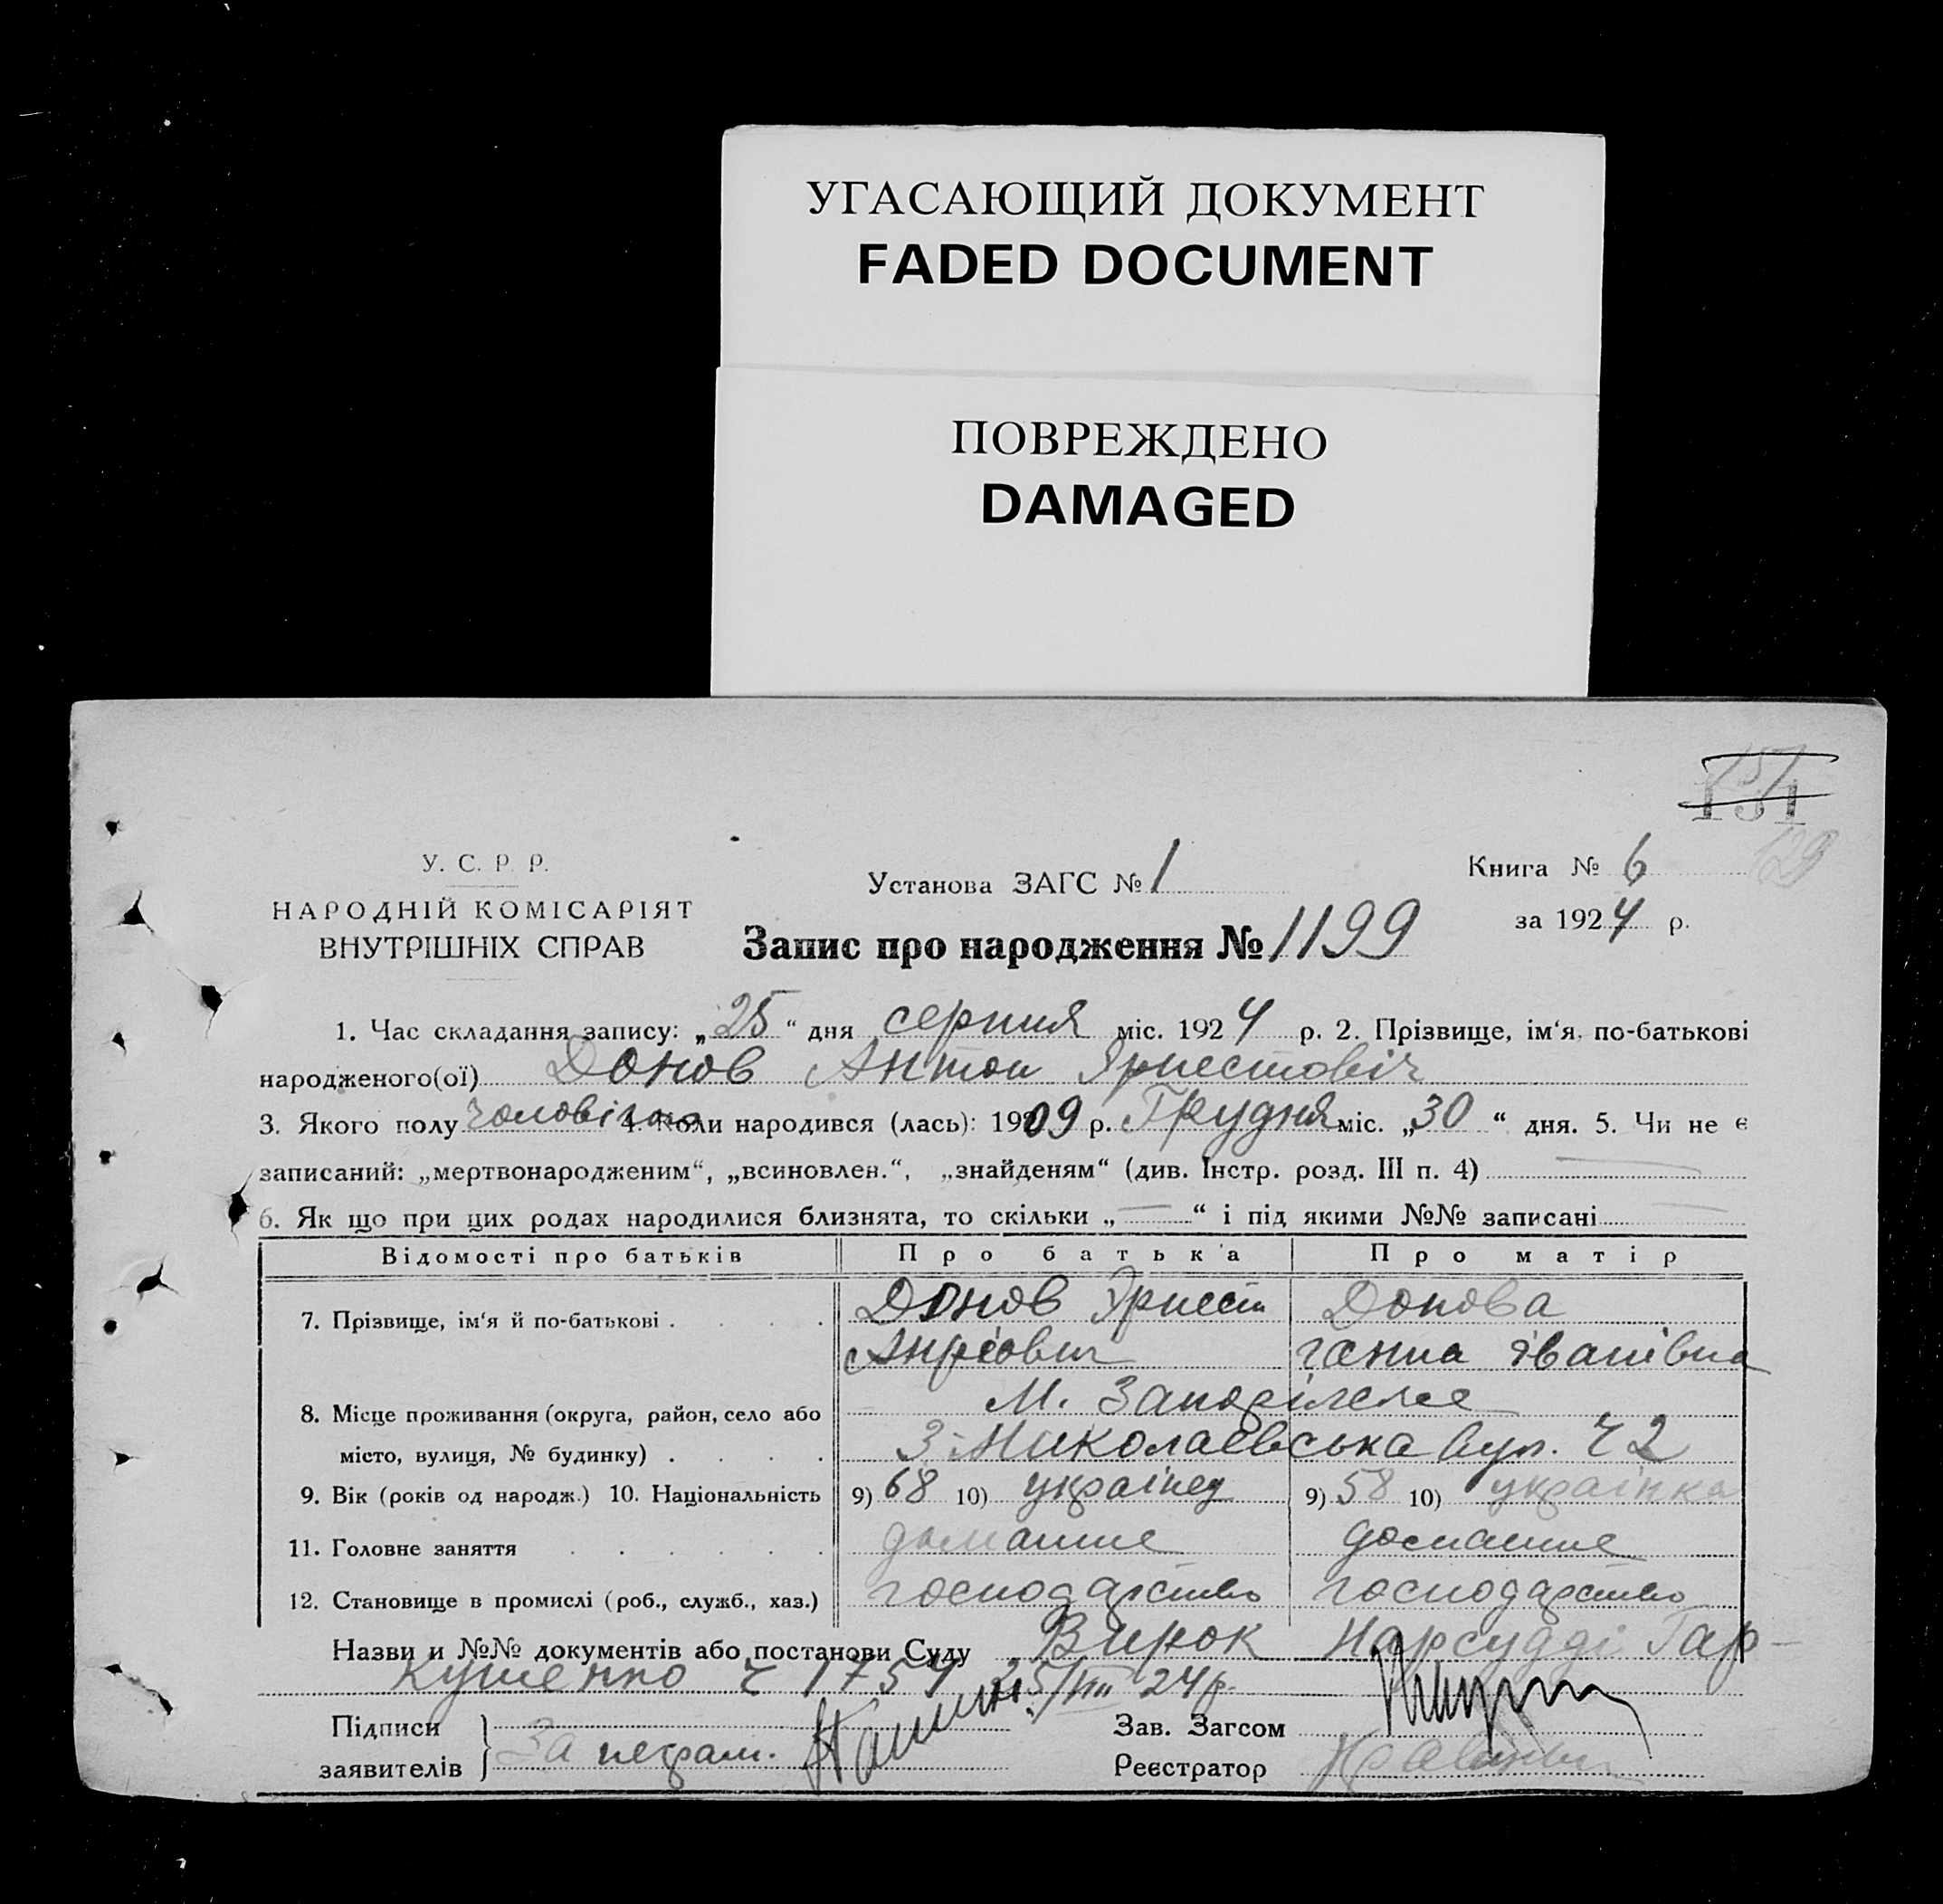 УГАСАЮЩИЙ ДОКУМЕНТ
FADED DOCUMENT
ПОВРЕЖДЕНО
DAMAGED
151
129
У. С. Р. Р.
НАРОДНІЙ КОМІСАРІЯТ
ВНУТРІШНІХ СПРАВ
Установа ЗАГС № 1
Книга № 6
за 1924 р.
Запис про народження № 1199
1. Час складання запису: „25“ дня серпня міс. 1924 р. 2. Прізвище, ім'я, по-батькові
народженого(ої) Донов Антон Ернестовіч
3. Якого полу чоловічого 4. Коли народився (лась): 1909 р. Грудня міс. „30“ дня. 5. Чи не є
записаний: „мертвонародженим“, „всиновлен.“, „знайденям“ (див. Інстр. розд. III п. 4)
6. Як що при цих родах народилися близнята, то скільки „—“ і під якими №№ записані
Відомості про батьків Про батька Про матір
7. Прізвище, ім'я й по-батькові . . . . Донов Ернест Донова
Ганна Іванівна
8. Місце проживання (округа, район, село або М.
місто, вулиця, № будинку) . . . . Миколаєвська вул. ч 2
9. Вік (років од народж.) 10. Національність 9) 68 10) українец 9) 58 10) українка
11. Головне заняття . . . . . . домашнє домашнє
12. Становище в промислі (роб., служб., хаз.) господарство господарство
Назви и №№ документів або постанови Суду Вирок Нарсудді Гар-
кушенко ч 1754 25/VIII 24р.
Підписи
заявителів } За неграм.
Зав. Загсом
Реєстратор